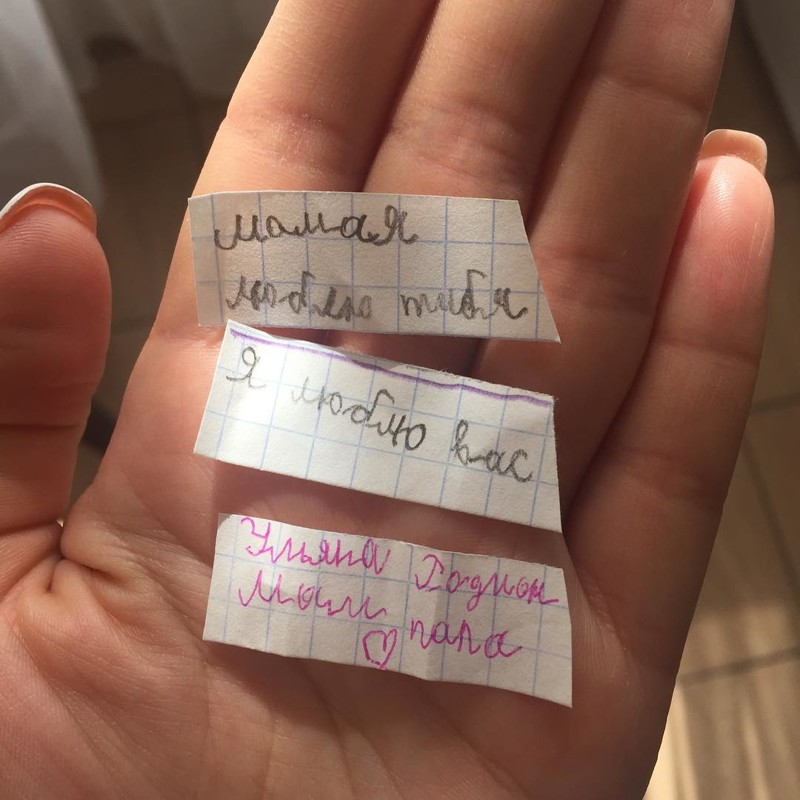 мамая
люблю тибя
Я люблю вас
Ульяна Родион
Мам папа